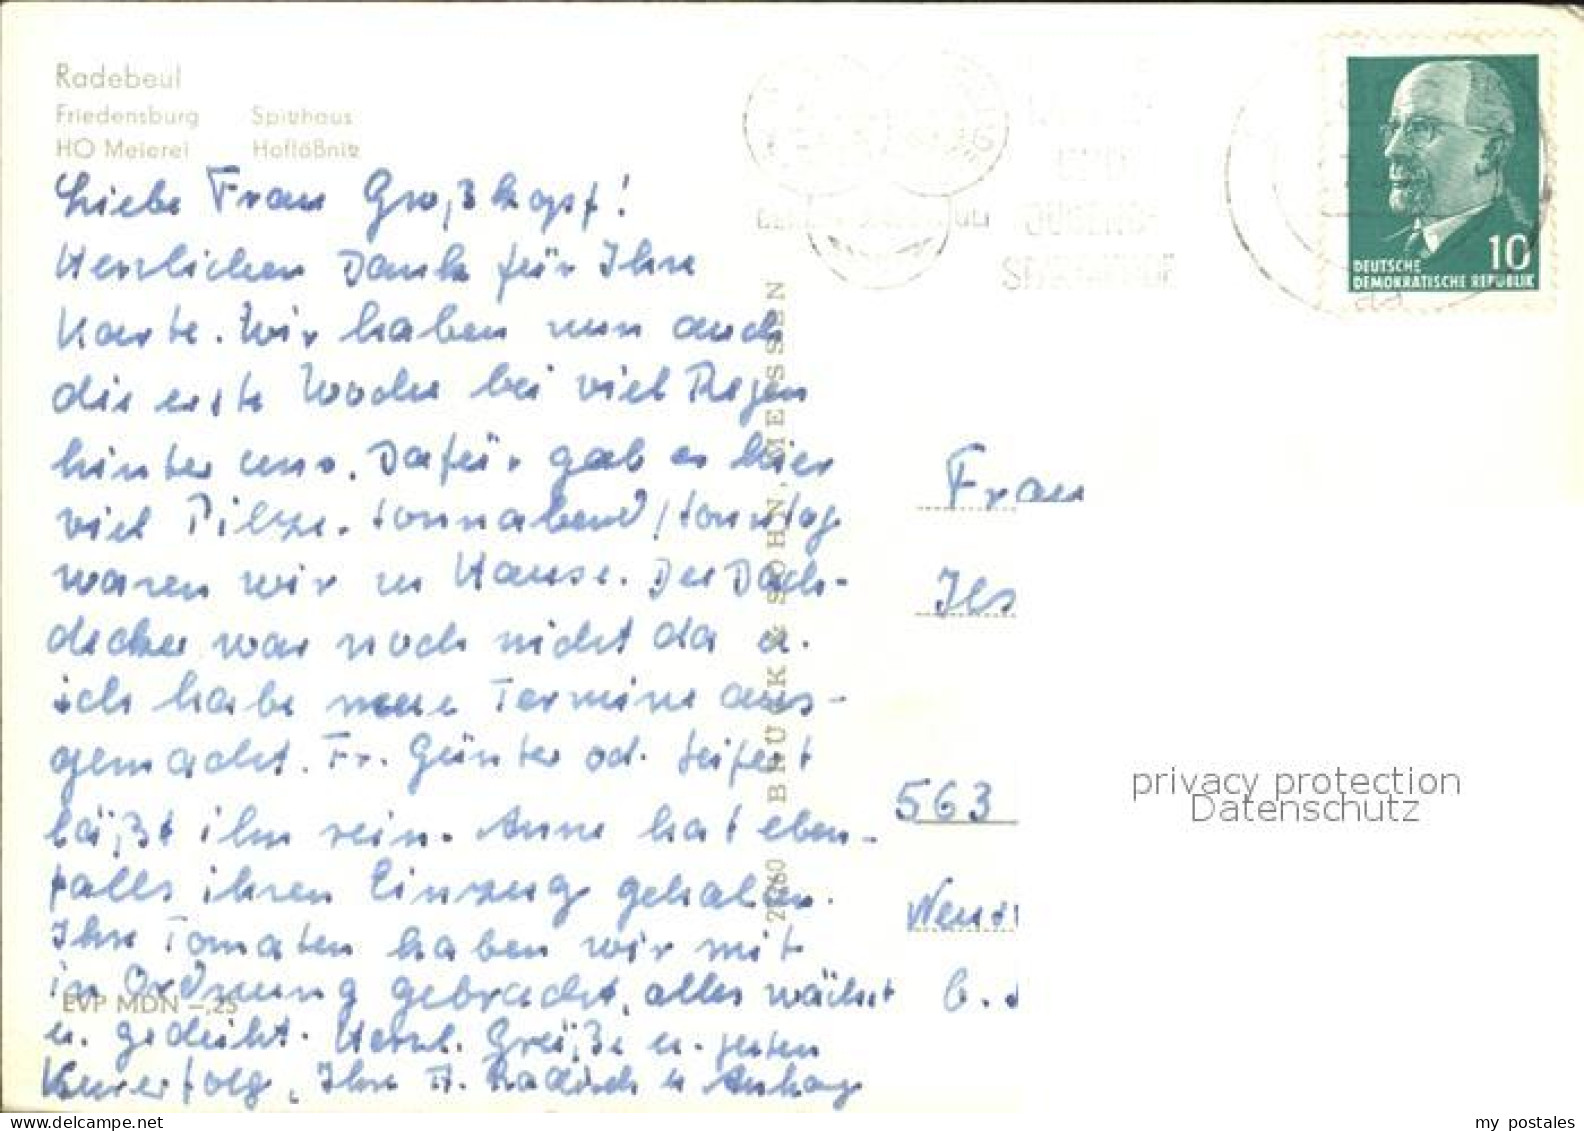 Radebeul
Friedensburg Spitzhaus
HO Meierei Hoflößnitz
Liebe Frau Großkopf!
Herzlichen Dank für Ihre
Karte. Wir haben nun auch
die erste Woche bei viel Regen
hinter uns. Dafür gab es hier
viel Pilze. Sonnabend/Sonntag
waren wir zu Hause. Der Dach-
decker war noch nicht da u.
ich habe neue Termine aus-
gemacht. Fr. Günter od. Seifert
läßt ihn rein. Anne hat eben-
falls ihren Einzug gehalten.
Ihre Tomaten haben wir mit
in Ordnung gebracht, alles wächst
u. gedeiht. Herzl. Grüße u. guten
Kurerfolg, Ihre
EVP MDN -,25
BRÜCK & SOHN, MEISSEN
10
DEUTSCHE
DEMOKRATISCHE REPUBLIK
Frau
Ils
563
b.
privacy protection
Datenschutz
my postales